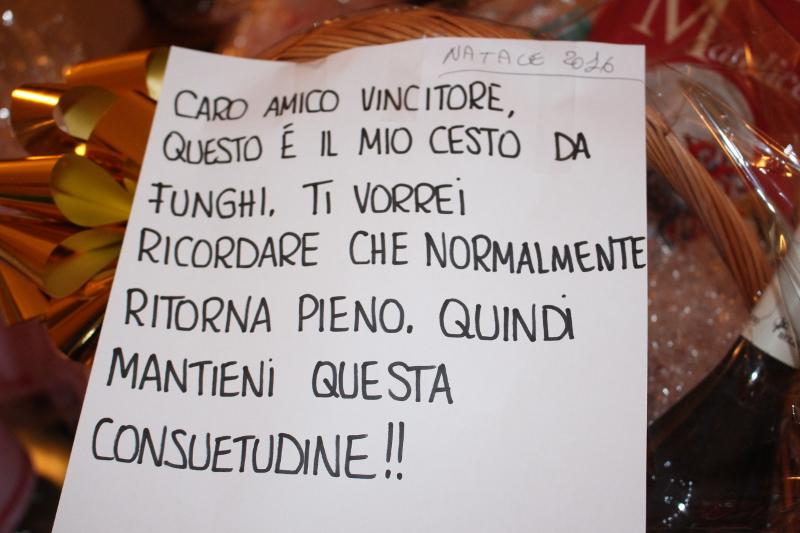 NATALE 2016
CARO AMICO VINCITORE,
QUESTO É IL MIO CESTO DA
FUNGHI. TI VORREI
RICORDARE CHE NORMALMENTE
RITORNA PIENO. QUINDI
MANTIENI QUESTA
CONSUETUDINE!!